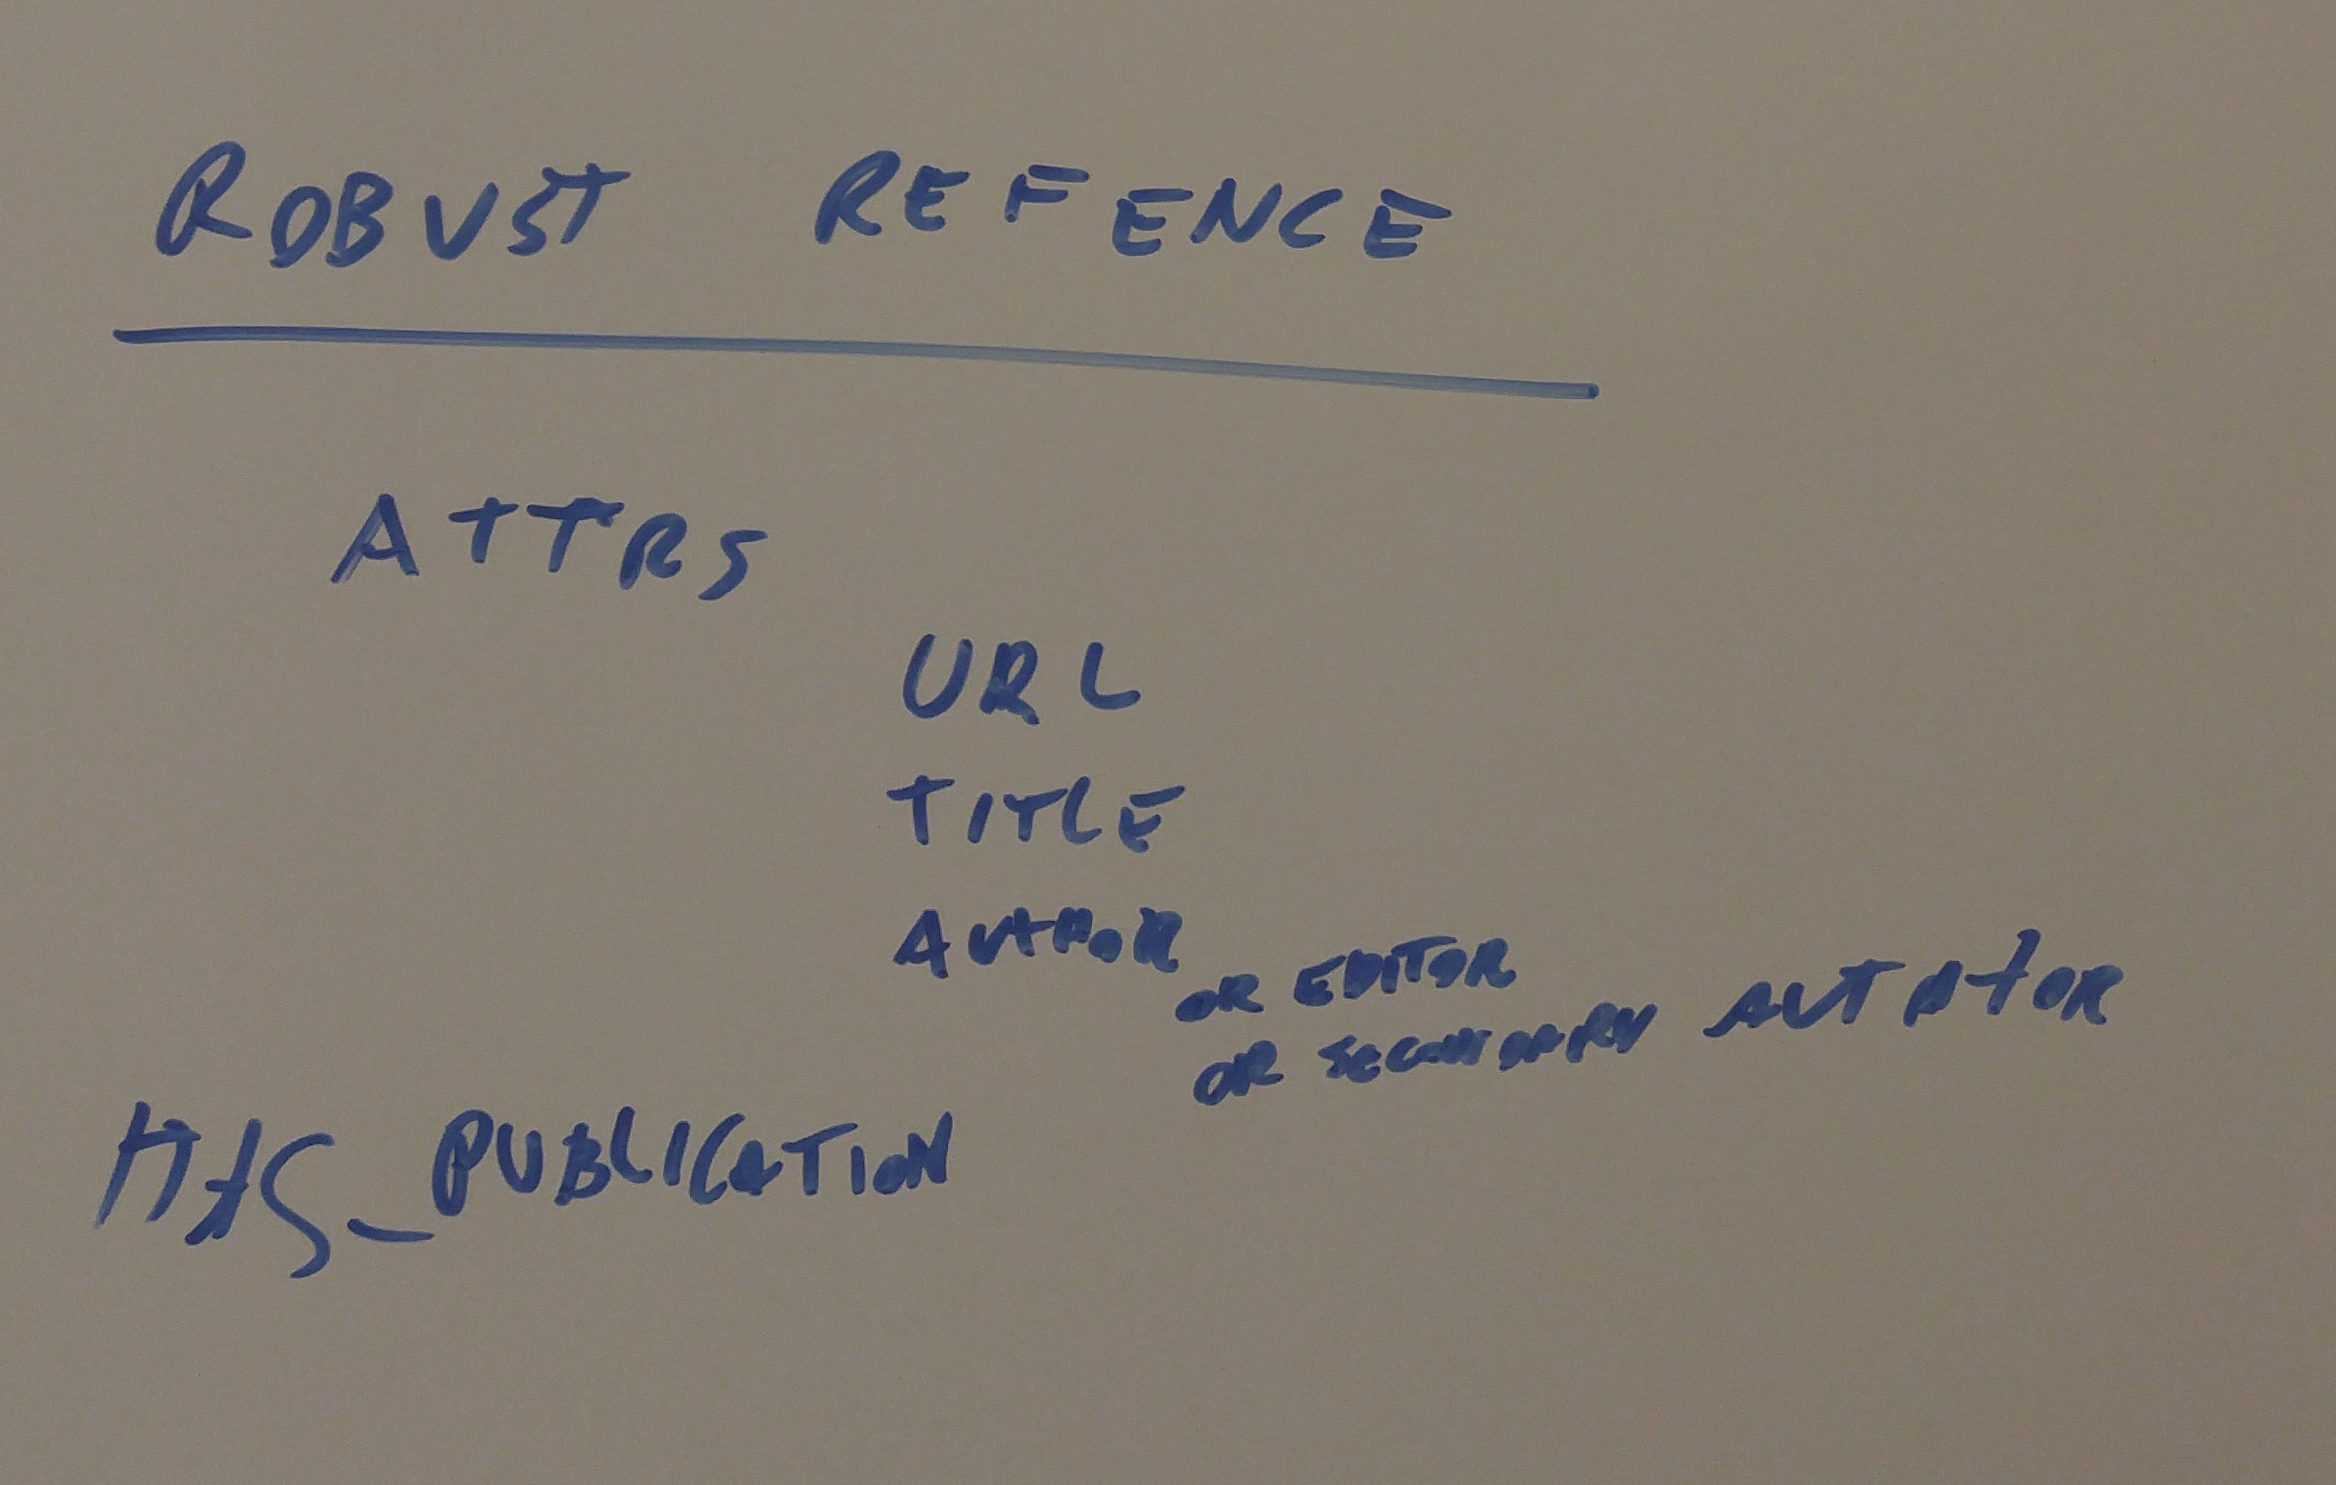 ROBUST REFENCE
ATTRS
URL
TITLE
AUTHOR
OR EDITOR
OR SECONDARY AUTHOR
HAS_PUBLICATION